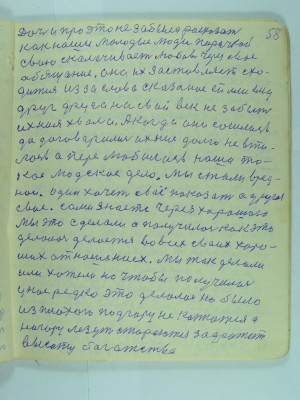 58
дочь про это не забыла рассказать
как наши молодые люди парочкой
свою сколачивает любовь через свое
обещание. она их заставляет схо-
дится из за слова сказаное ей или ему
друг друга на свой век не забыть
ихняя хвала. А когда они сошлись
да договорились ихнее долго не
а перелюбились наша та-
кое людское дело. Мы стали вред-
ной. один хочет своё показать а другая
свое. Сами знаете через хорошаго
мы это сделали а получилось как это
делалось делается во всех своих хоро-
ших отношениях. Мы так делали
или хотели но чтобы получилось
у нас редко это делалось но было
из плохого под гору не катится а
на гору лезут стараются задержать
высоту богатства